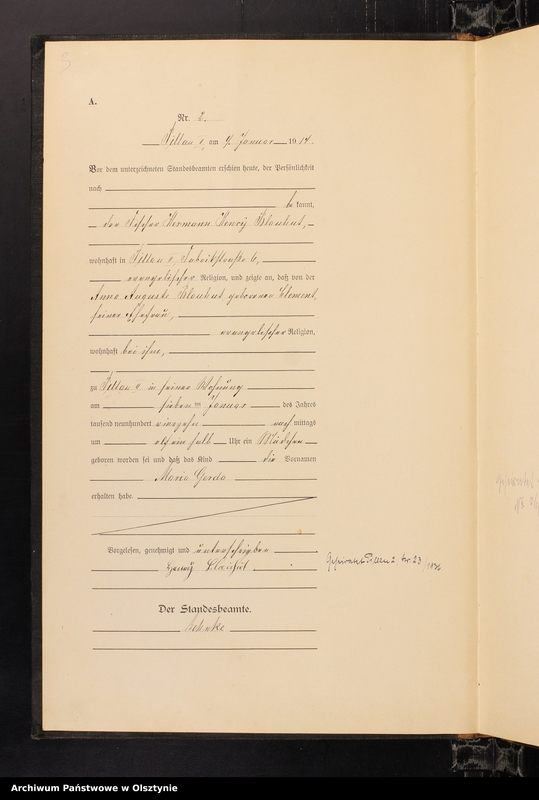 A.
Nr. 2.
Pillau I, am 9. Januar 1914.
Vor dem unterzeichneten Standesbeamten erschien heute, der Persönlichkeit
nach
be kannt,
der Fischer Hermann Henry Blankut,
wohnhaft in Pillau II, Fabrikstraße 6,
evangelischer Religion, und zeigte an, daß von der
Anna Auguste Blankut geborenen Klement,
seiner Ehefrau,
evangelischer Religion,
wohnhaft bei ihm,
zu Pillau II in seiner Wohnung
am sieben ten Januar des Jahres
tausend neunhundert vierzehn nach mittags
um elf ein halb Uhr ein Mädchen
geboren worden sei und daß das Kind die Vornamen
Maria Gerda
erhalten habe.
Vorgelesen, genehmigt und unterschrieben
Henry Blankut
Geheiratet Pillau 2, Nr. 23/1936
Der Standesbeamte.
Archiwum Państwowe w Olsztynie